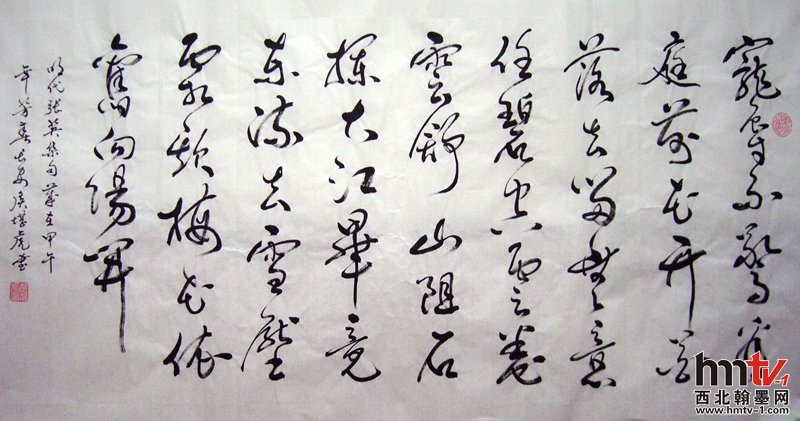 寵辱不驚看
庭前花开花
落去留無意
任碧空云卷
雲舒山阻石
攔大江畢竟
東流去雪壓
霜欺梅花依
舊向陽開
明代張英集句 歲在甲午
年芳春長安侯堪虎書
hmtv-1
西北翰墨网
www.hmtv-1.com